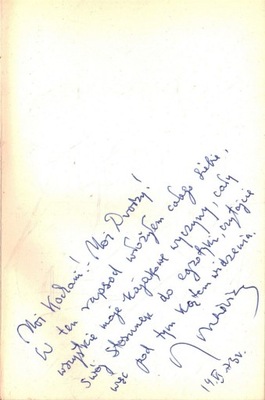 Moi Kochani! Moi Drodzy!
W ten rapsod włożyłem całego siebie,
wszystkie moje kajakowe wyczyny, cały
swój stosunek do egzotyki, czytajcie
więc pod tym kątem widzenia.
14.XI.73r.